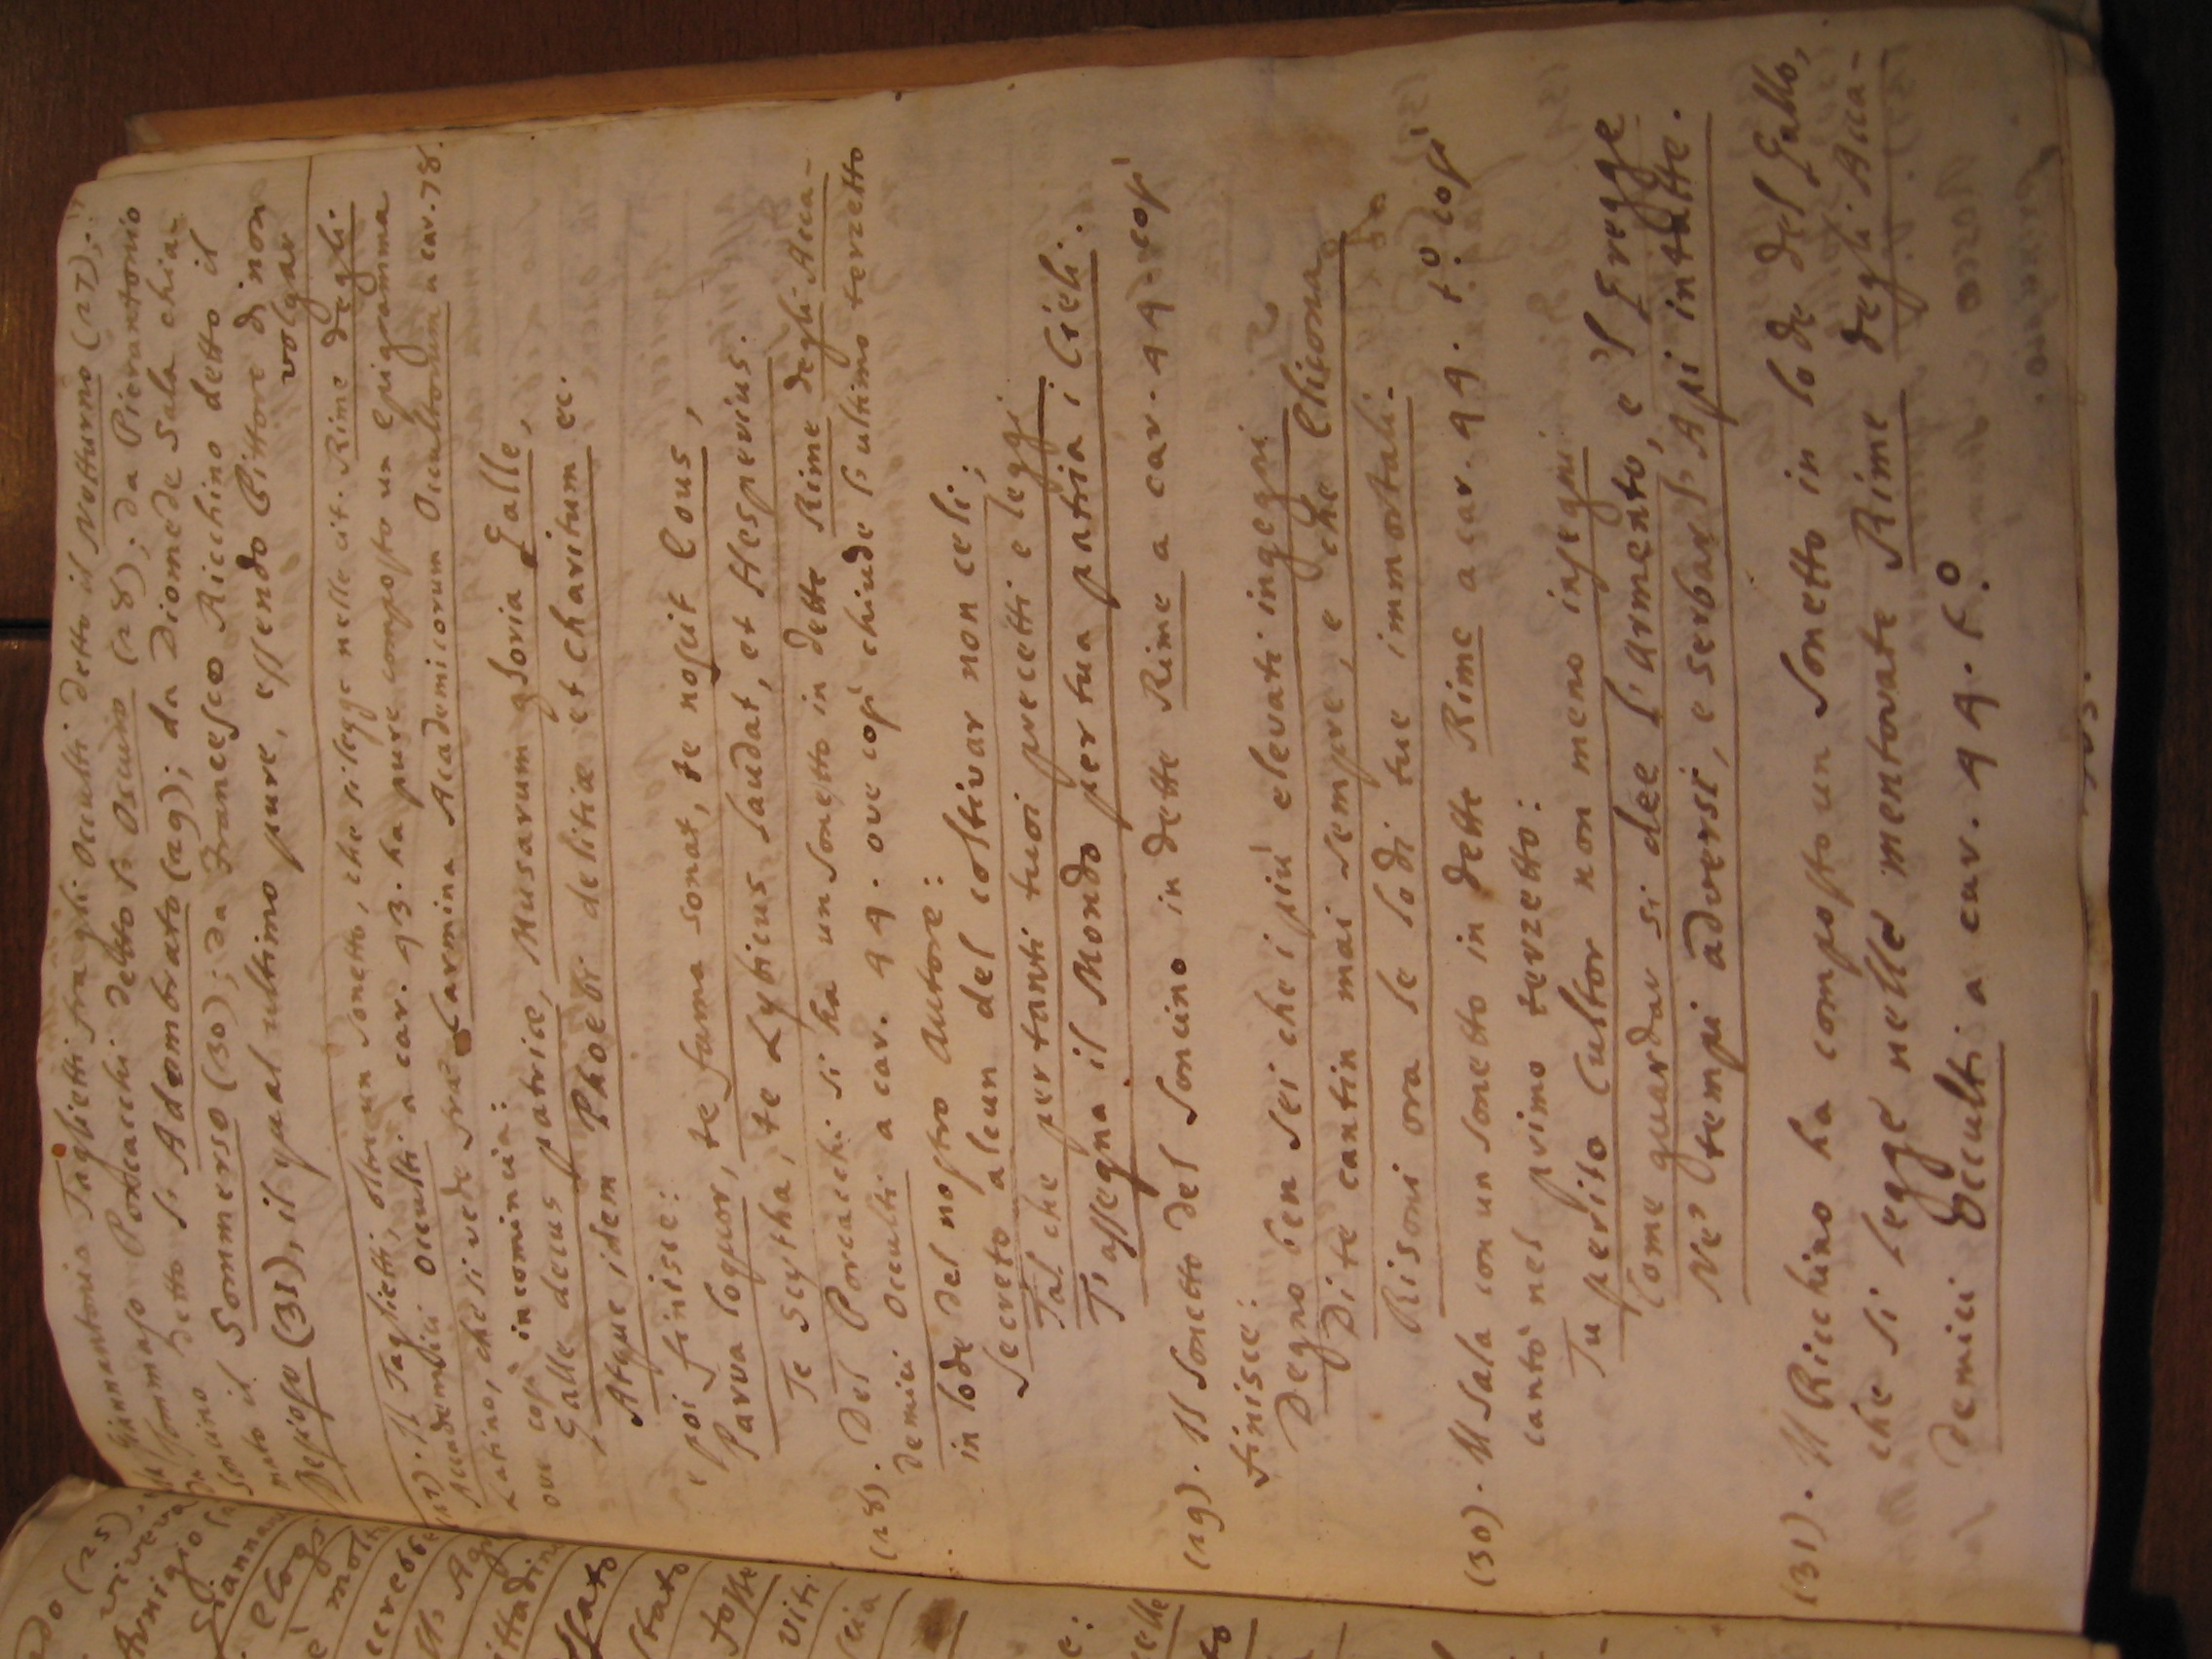 Giannantonio Taglietti fra gli Occulti detto il Notturno (27);
da Tommaso Porcacchi detto l'Oscuro (28); da Pierantonio
Soncino detto l'Adombrato (29); da Diomede Sala chia-
mato il Sommerso (30); da Francesco Ricchino detto il
Desioso (31), il qual ultimo pure, essendo Pittore di non
volgar
(27). Il Taglietti, oltre un Sonetto, che si legge nelle cit. Rime degli
Accademici Occulti a car. 43. ha pure composto un epigramma
Latino, che si vede fra' Carmina Academicorum Occultorum a car. 78.
ove così incomincia:
Galle decus patriae, Musarum gloria Galle,
Atque idem Phoebi delitiae et charitum ec.
e poi finisce:
Parva loquor, te fama sonat, te noscit Eous,
Te Scytha, te Lybicus laudat, et Hesperius.
(28). Del Porcacchi si ha un Sonetto in dette Rime degli Acca-
demici Occulti a car. 44. ove così chiude l'ultimo terzetto
in lode del nostro Autore:
Secreto alcun del coltivar non celi;
Tal che per tanti tuoi precetti e leggi
T'assegna il Mondo per tua patria i Cieli.
(29). Il Sonetto del Soncino in dette Rime a car. 44. così
finisce:
Degno ben sei che i più elevati ingegni
Di te cantin mai sempre, e che Elicona
Risoni ora le lodi tue immortali.
(30). Il Sala con un Sonetto in dette Rime a car. 44. t.o così
cantò nel primo terzetto:
Tu perito Cultor non meno insegni
Come guardar si dee l'Armento, e 'l Gregge
Ne' tempi adversi, e serbar l'Api intatte.
(31). Il Ricchino ha composto un Sonetto in lode del Gallo,
che si legge nelle mentovate Rime degli Acca-
demici Occulti a car. 44. t.o